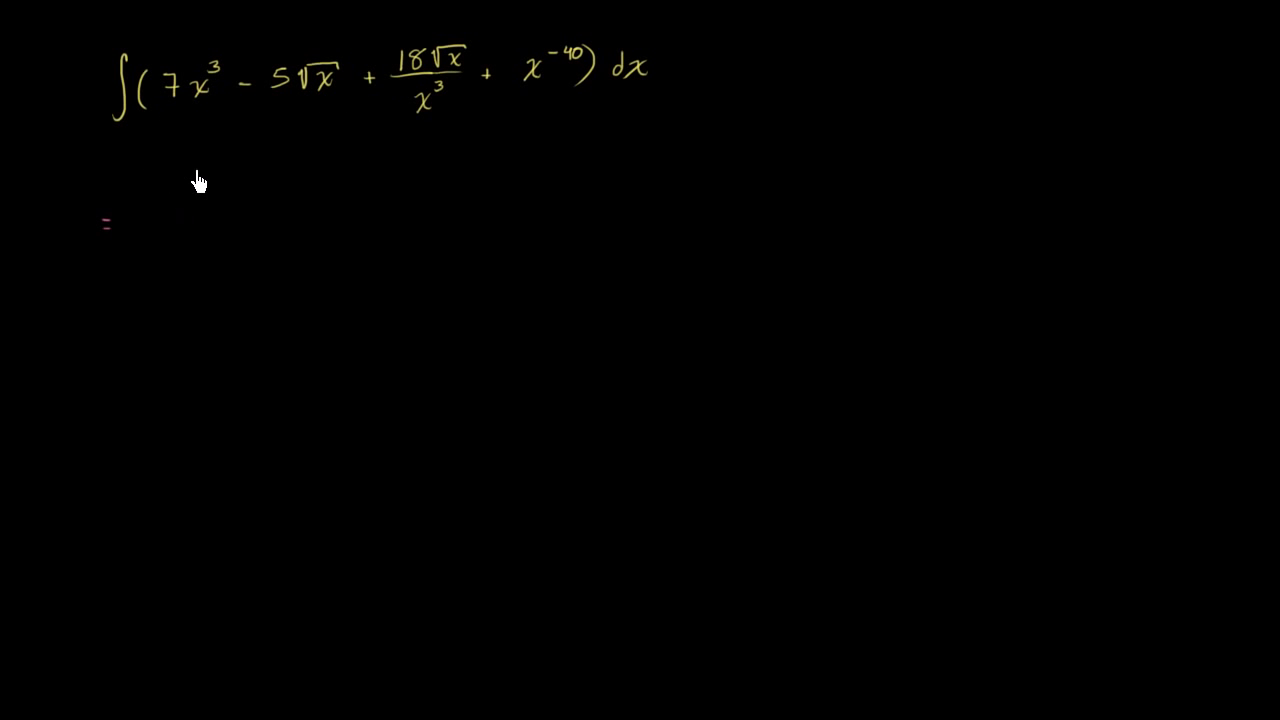 ∫( 7x³ - 5√x + 18√x/x³ + x⁻⁴⁰) dx
=